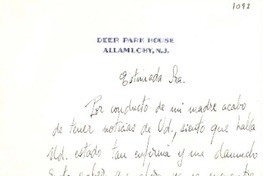 1092
DEER PARK HOUSE
ALLAMUCHY, N.J.
Estimada Sra.
Por conducto de mi madre acabo
de tener noticias de Ud., siento que halla
Ud. estado tan enferma y me